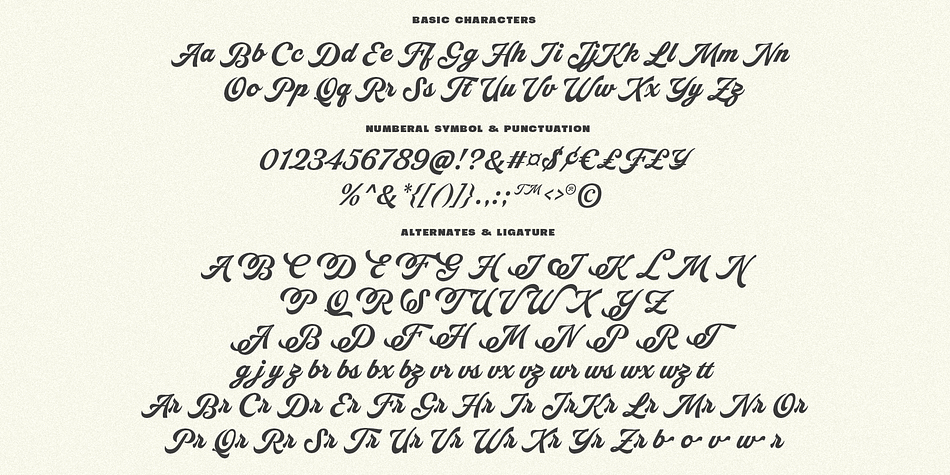 BASIC CHARACTERS
Aa Bb Cc Dd Ee Ff Gg Hh Ii Jj Kk Ll Mm Nn
Oo Pp Qq Rr Ss Tt Uu Vv Ww Xx Yy Zz
NUMBERAL SYMBOL & PUNCTUATION
0123456789@!?&#¤$¢€£₣₤¥
%^&*{[()]}.,:;™<>®©
ALTERNATES & LIGATURE
A B C D E F G H I J K L M N
P Q R S T U V W X Y Z
A B D F H M N P R T
g j y z br bs bx bz vr vs vx vz wr ws wx wz tt
Ar Br Cr Dr Er Fr Gr Hr Ir Jr Kr Lr Mr Nr Or
Pr Qr Rr Sr Tr Ur Vr Wr Xr Yr Zr b o v w r